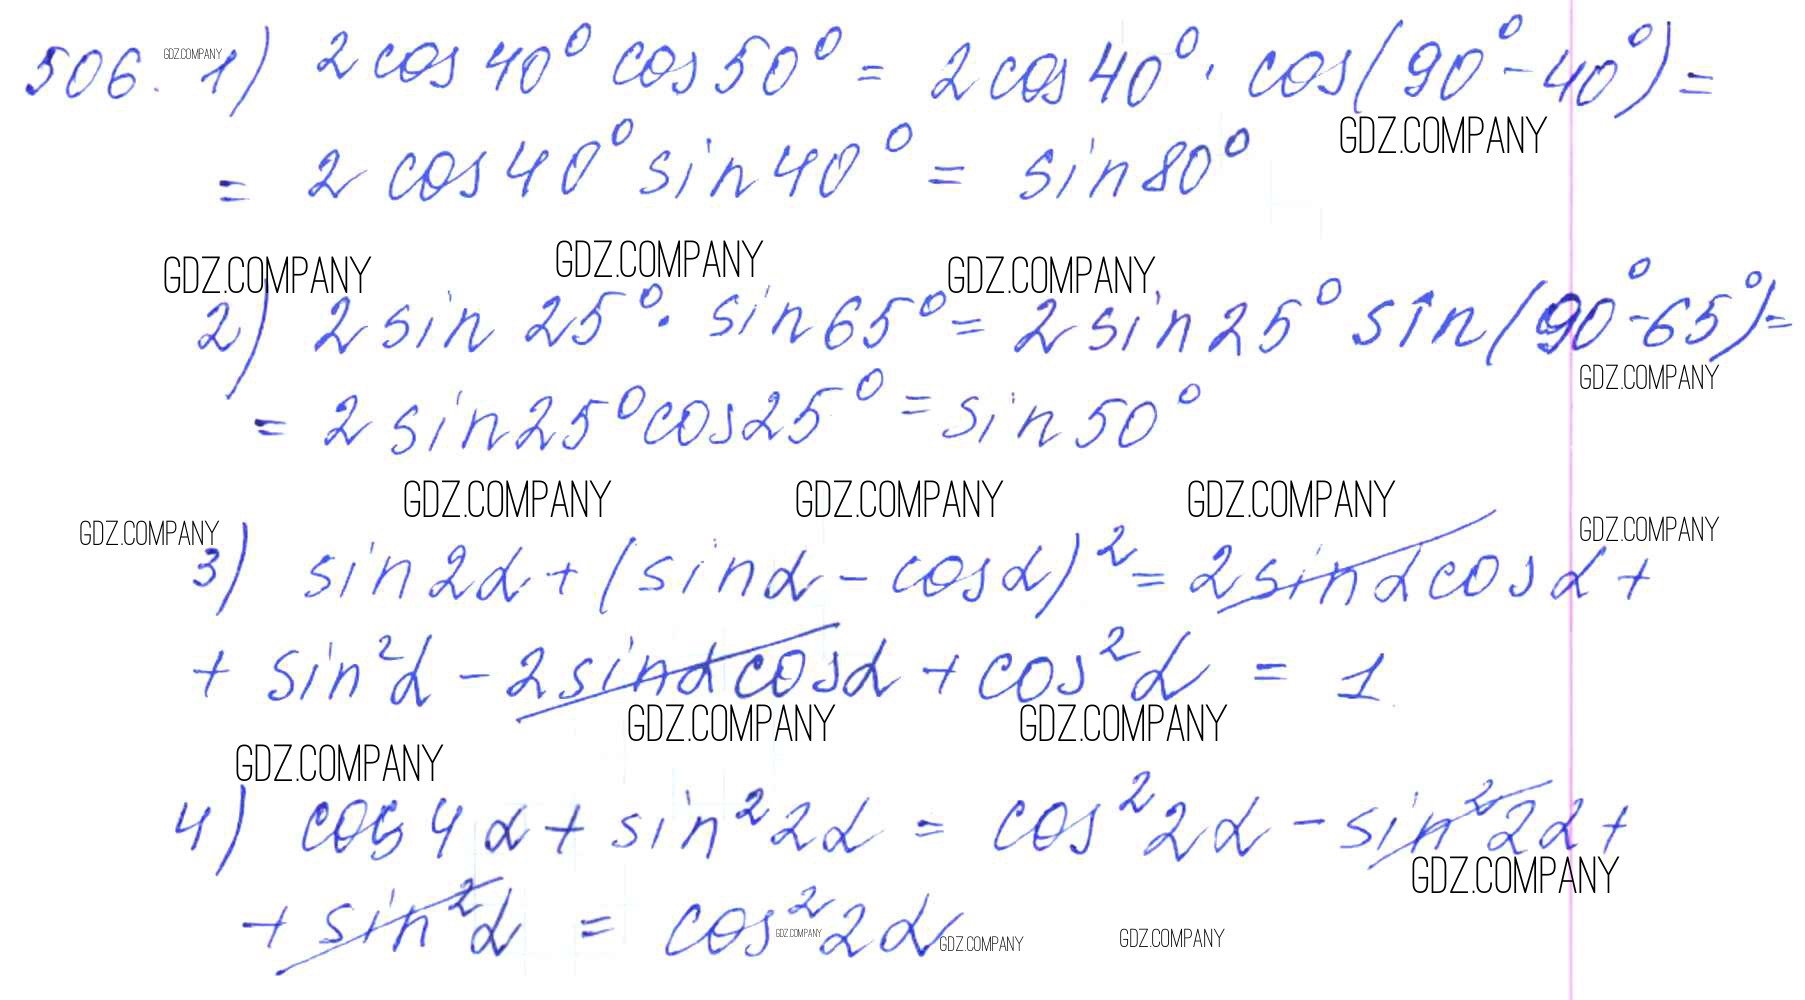 506. GDZ.COMPANY 1) 2 cos 40° cos 50° = 2 cos 40° · cos(90° - 40°) =
GDZ.COMPANY
= 2 cos 40° sin 40° = sin 80°
GDZ.COMPANY GDZ.COMPANY GDZ.COMPANY
2) 2 sin 25° · sin 65° = 2 sin 25° sin(90° - 65°) =
GDZ.COMPANY
= 2 sin 25° cos 25° = sin 50°
GDZ.COMPANY GDZ.COMPANY GDZ.COMPANY
GDZ.COMPANY GDZ.COMPANY
3) sin 2α + (sin α - cos α)² = 2 sin α cos α +
+ sin² α - 2 sin α cos α + cos² α = 1
GDZ.COMPANY GDZ.COMPANY
GDZ.COMPANY
4) cos 4α + sin² 2α = cos² 2α - sin² 2α +
GDZ.COMPANY
+ sin² α = cos² 2α
GDZ.COMPANY GDZ.COMPANY GDZ.COMPANY